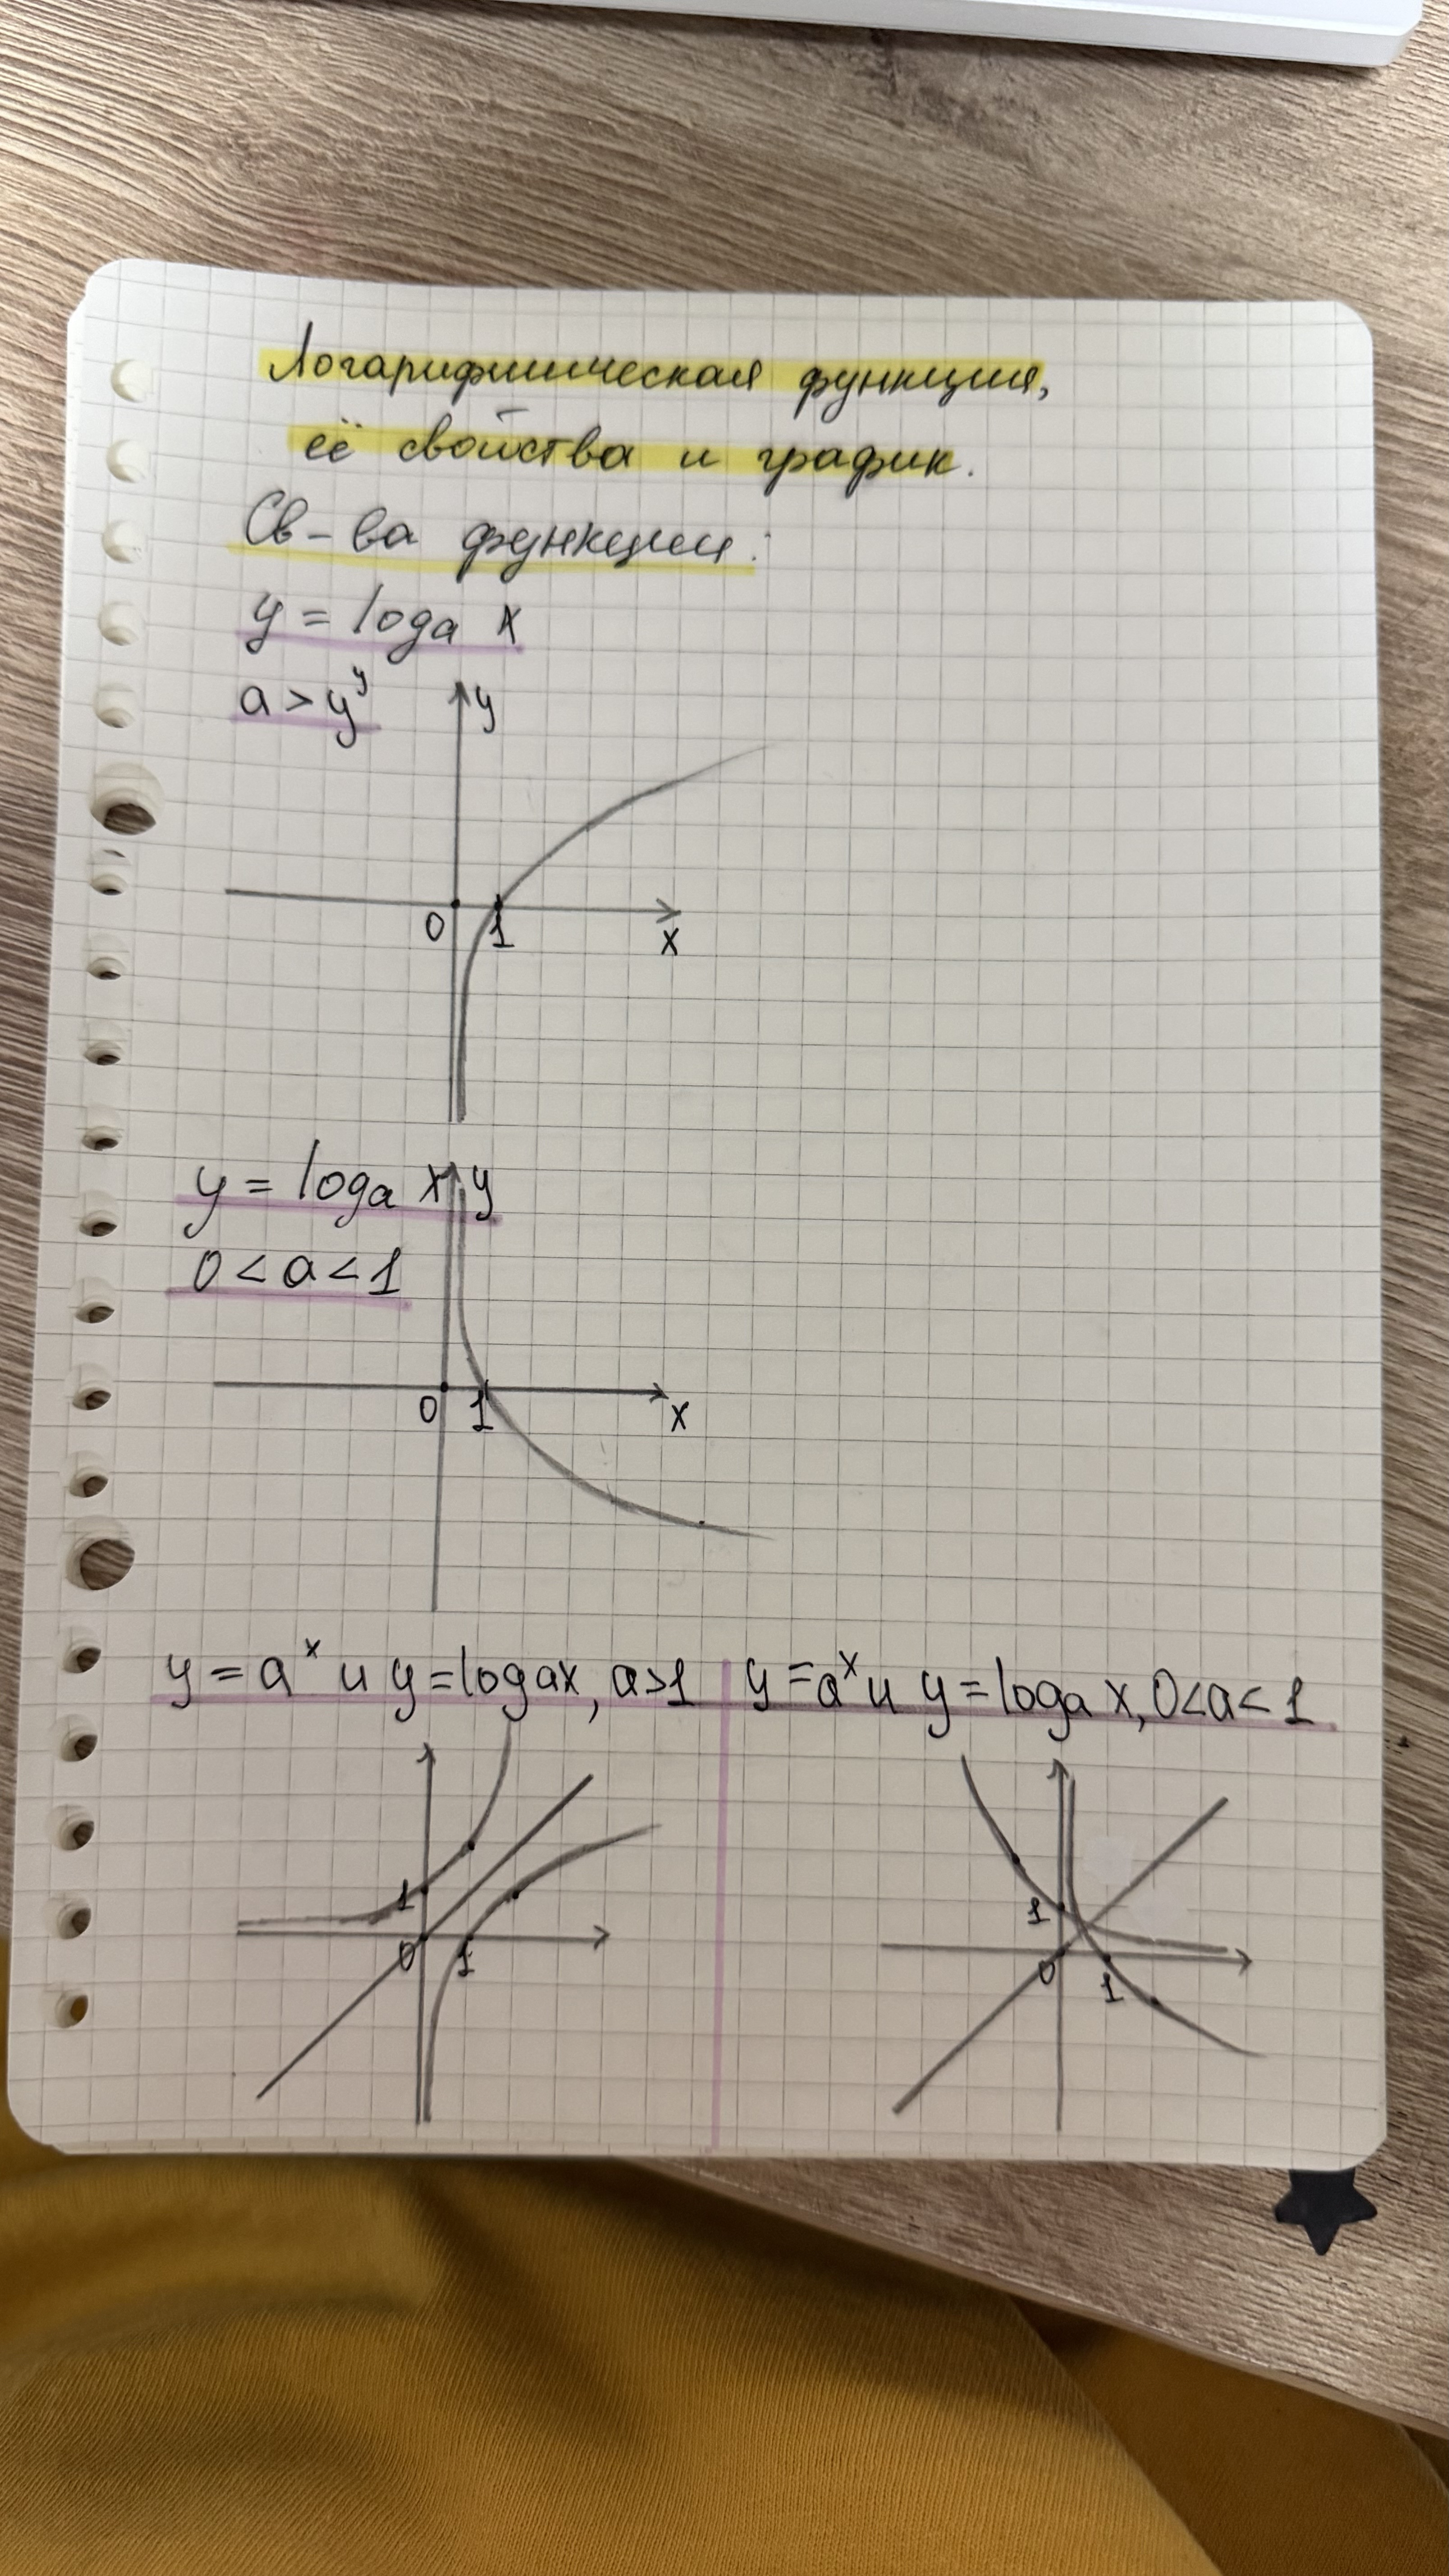 Логарифмическая функция,
её свойства и график.
Св-ва функции:
y = logₐ x
a > yʸ
y
0 1 x
y = logₐ x y
0 < a < 1
0 1 x
y = aˣ и y = logₐx, a>1
1
0 1
y = aˣ и y = logₐ x, 0<a<1
1
0 1